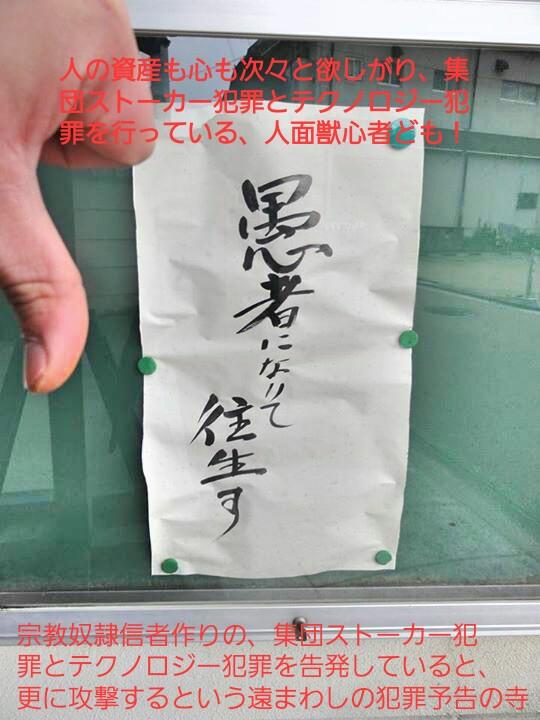 人の資産も心も次々と欲しがり、集
団ストーカー犯罪とテクノロジー犯
罪を行っている、人面獣心者ども！
愚者になりて
往生す
宗教奴隷信者作りの、集団ストーカー犯
罪とテクノロジー犯罪を告発していると、
更に攻撃するという遠まわしの犯罪予告の寺